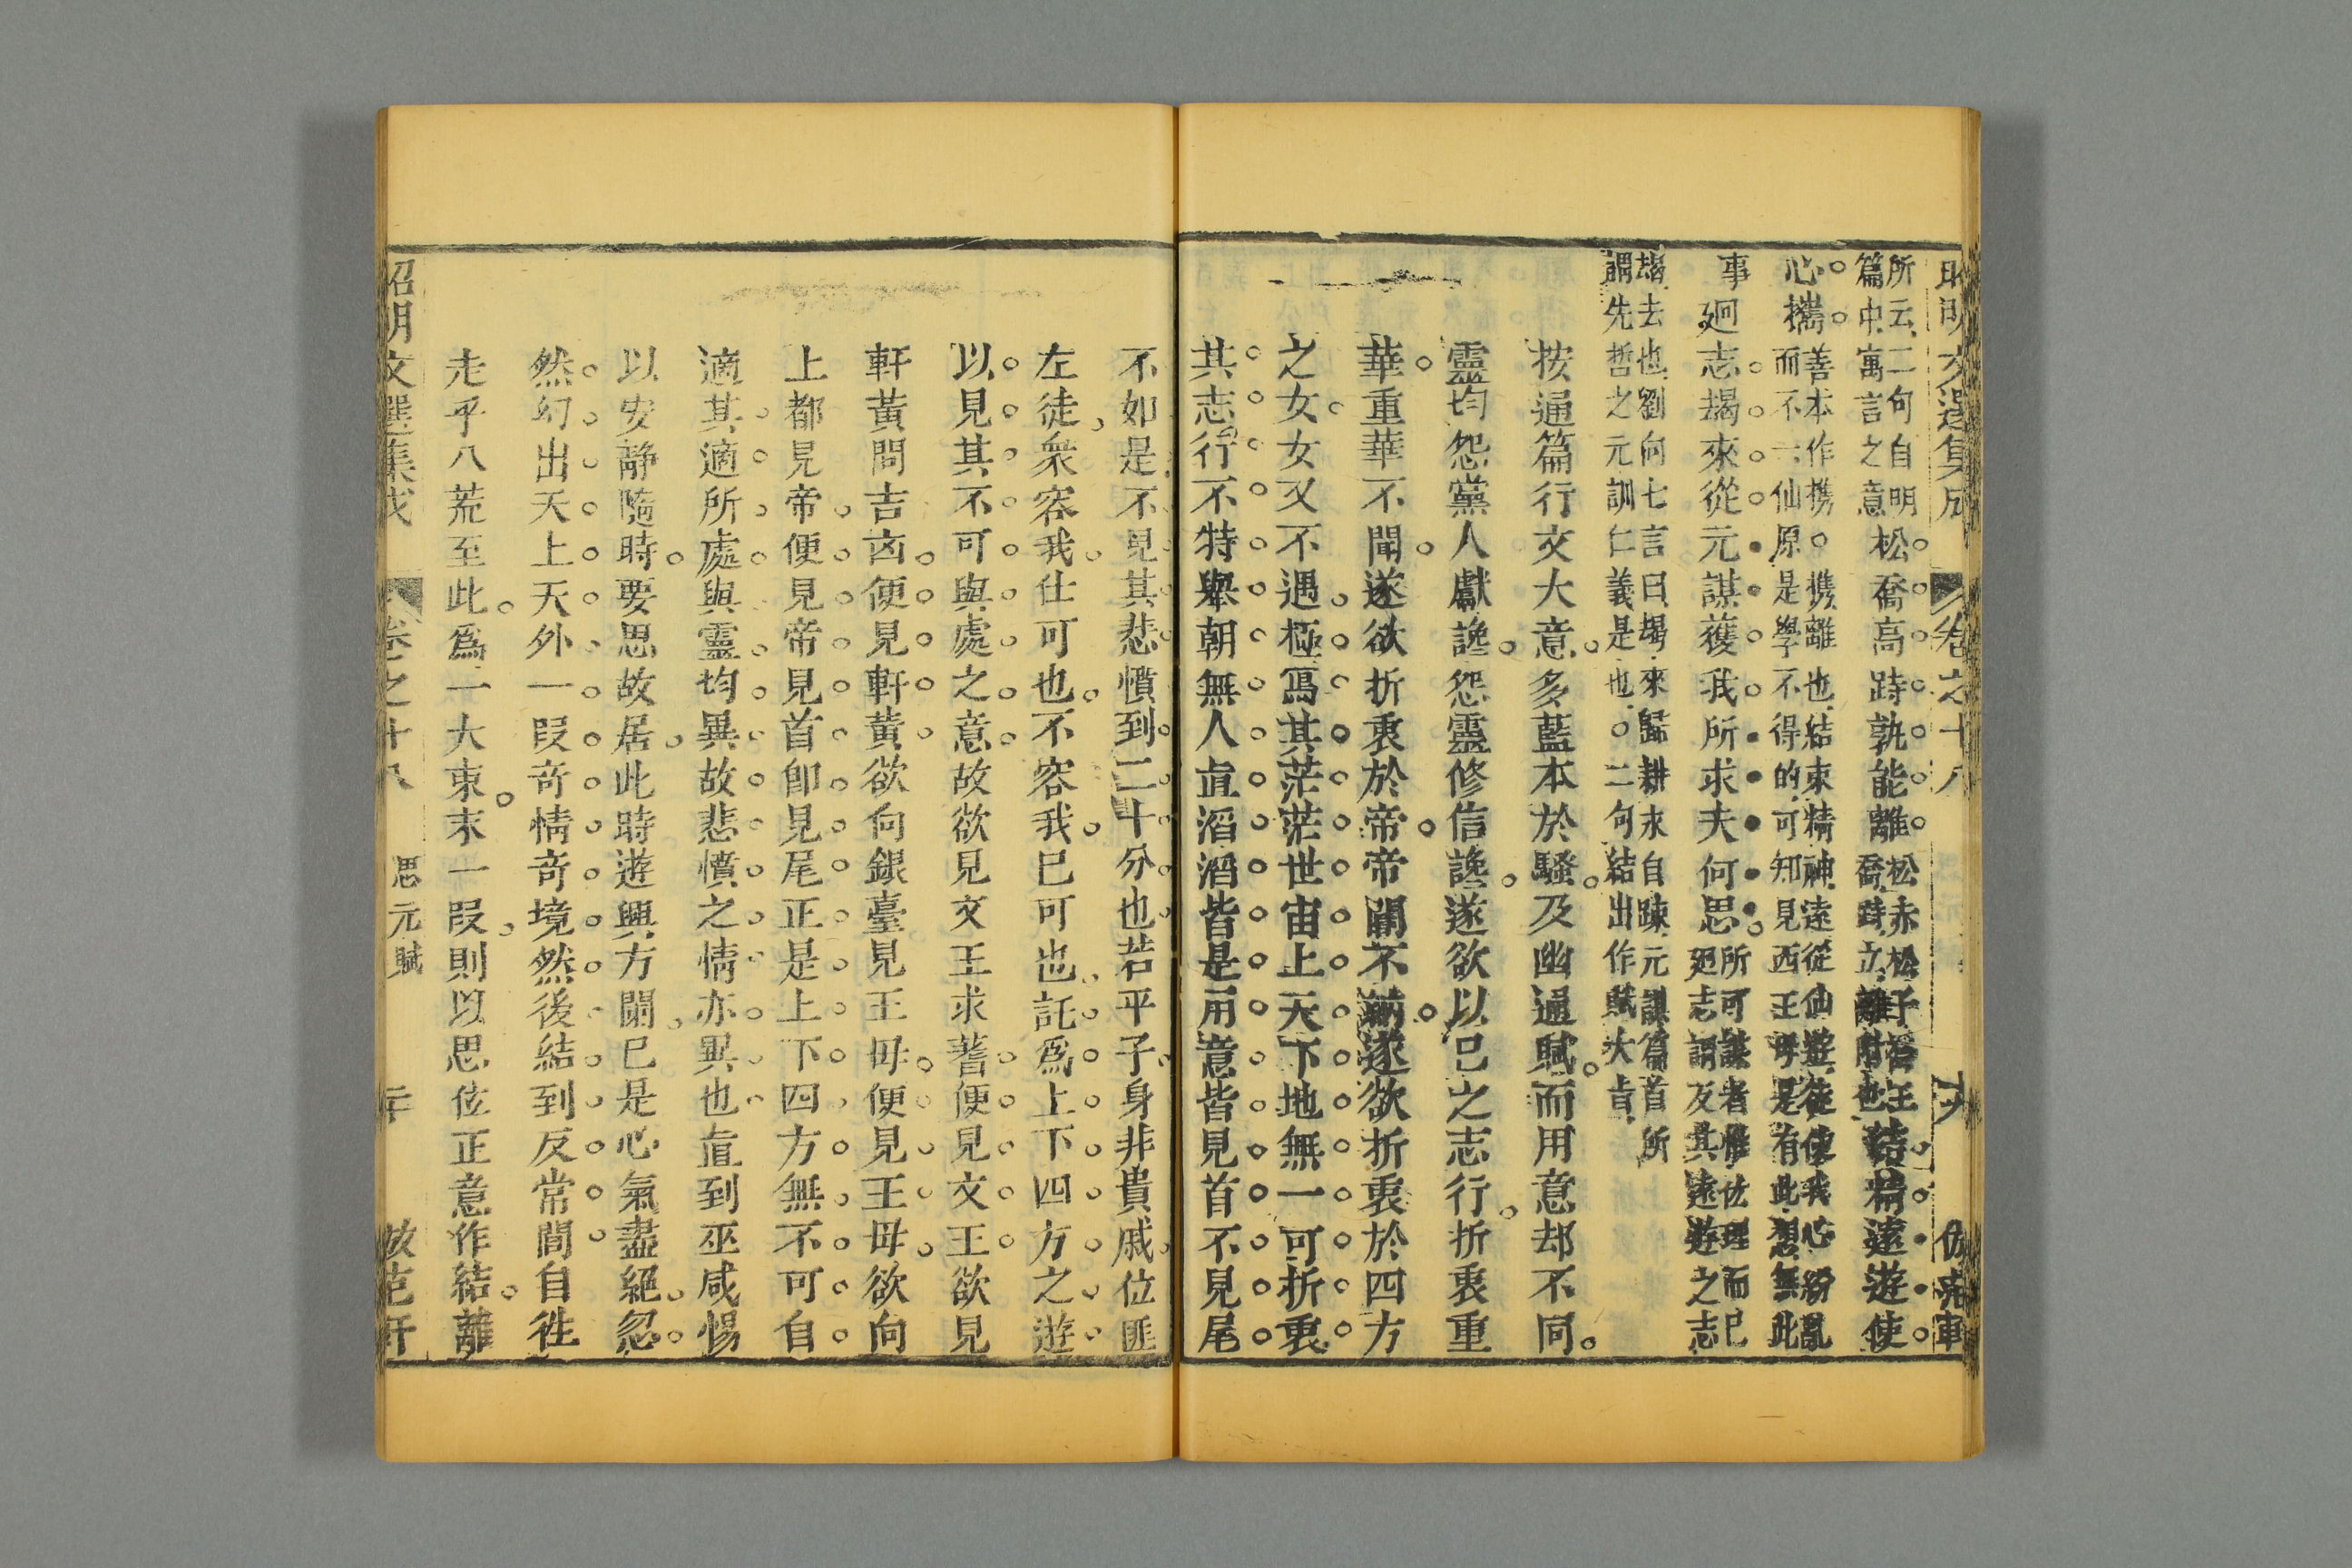 昭明文選集成 卷之十八
所云二句自明
篇中寓言之意松喬高跱孰能離松赤松子喬王
喬跱立離附也結精遠遊使
心攜善本作携○携離也結束精神遠從仙遊徒使我心紛亂
而不一仙原是學不得的可知見西王母是有此想無此
事廻志朅來從元諆獲我所求夫何思所可謀者惟此理而已
廻志謂反其遠遊之志
朅去也劉向七言曰朅來歸耕永自疎元諆篇首所
謂先哲之元訓仁義是也○二句結出作賦大旨
按通篇行文大意多藍本於騷及幽通賦而用意却不同
靈均怨黨人獻讒怨靈修信讒遂欲以己之志行折衷重
華重華不聞遂欲折衷於帝帝閽不納遂欲折衷於四方
之女女又不遇極寫其茫茫世宙上天下地無一可折衷
其志行不特舉朝無人直滔滔皆是用意皆見首不見尾
不如是不見其悲憤到二十分也若平子身非貴戚位匪
左徒衆容我仕可也不容我已可也託爲上下四方之遊
以見其不可與處之意故欲見文王求蓍便見文王欲見
軒黃問吉凶便見軒黃欲向銀臺見王母便見王母欲向
上都見帝便見帝見首卽見尾正是上下四方無不可自
適其適所處與靈均異故悲憤之情亦異也直到巫咸惕
以安靜隨時要思故居此時遊興方闌已是心氣盡絕忽
然幻出天上天外一段奇情奇境然後結到反常間自徃
走乎八荒至此爲一大束末一段則以思位正意作結離
昭明文選集成 卷之十八 思元賦